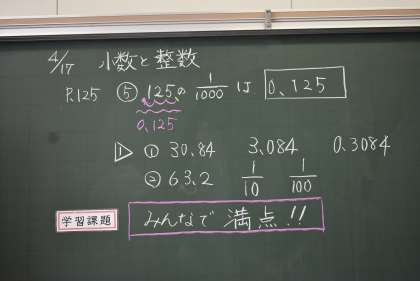 4/17 小数と整数
P.125 ⑤ 125の 1/1000 は 0.125
0.125
▷1 ① 30.84 3.084 0.3084
② 63.2 1/10 1/100
学習課題 みんなで満点!!